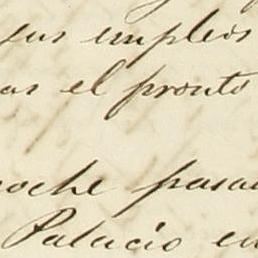 sus empleos
as el pronto
noche pasa
Palacio en